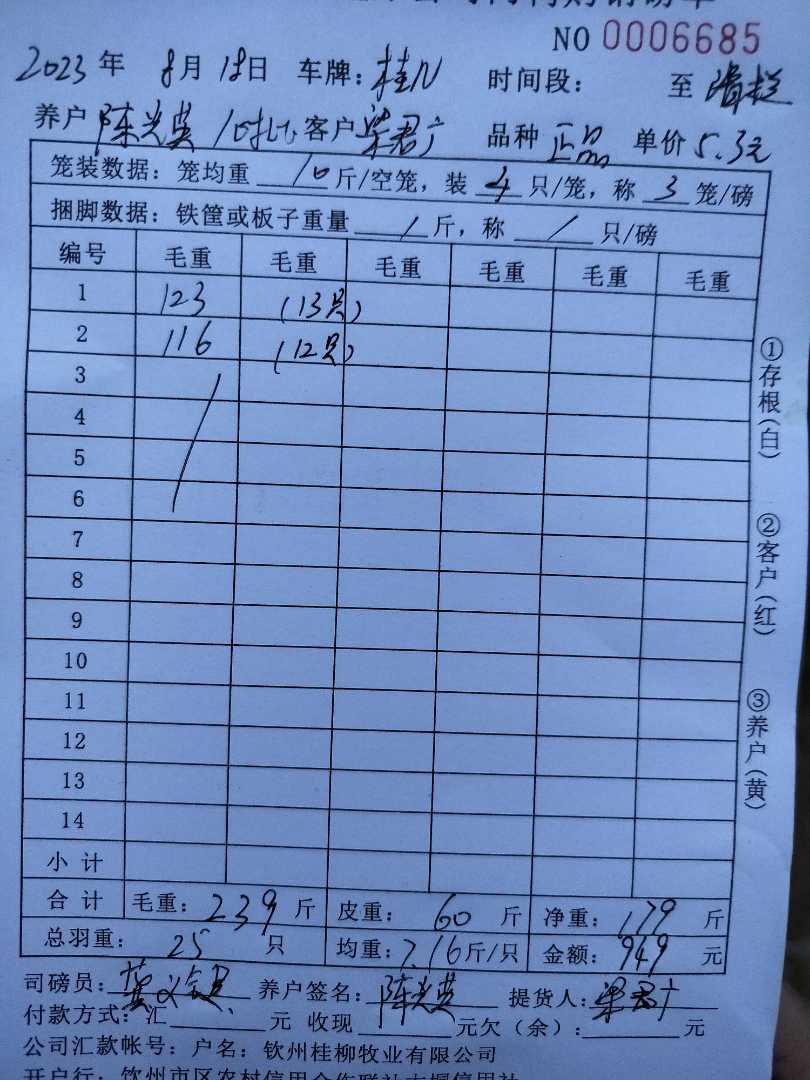 NO 0006685
2023年 8月18日 车牌：桂N 时间段： 至
养户 陈光英 客户 梁君广 品种 正品 单价 5.3元
笼装数据：笼均重 10 斤/空笼，装 4 只/笼，称 3 笼/磅
捆脚数据：铁筐或板子重量 / 斤，称 / 只/磅
编号 毛重 毛重 毛重 毛重 毛重 毛重
1 123 (13只)
2 116 (12只)
3
4
5
6
7
8
9
10
11
12
13
14
小计
合计 毛重：239 斤 皮重：60 斤 净重：179 斤
总羽重：25 只 均重：7.16斤/只 金额：949 元
①存根(白)
②客户(红)
③养户(黄)
司磅员： 养户签名：陈光英 提货人：梁君广
付款方式：汇 元 收现 元欠（余）： 元
公司汇款帐号：户名：钦州桂柳牧业有限公司